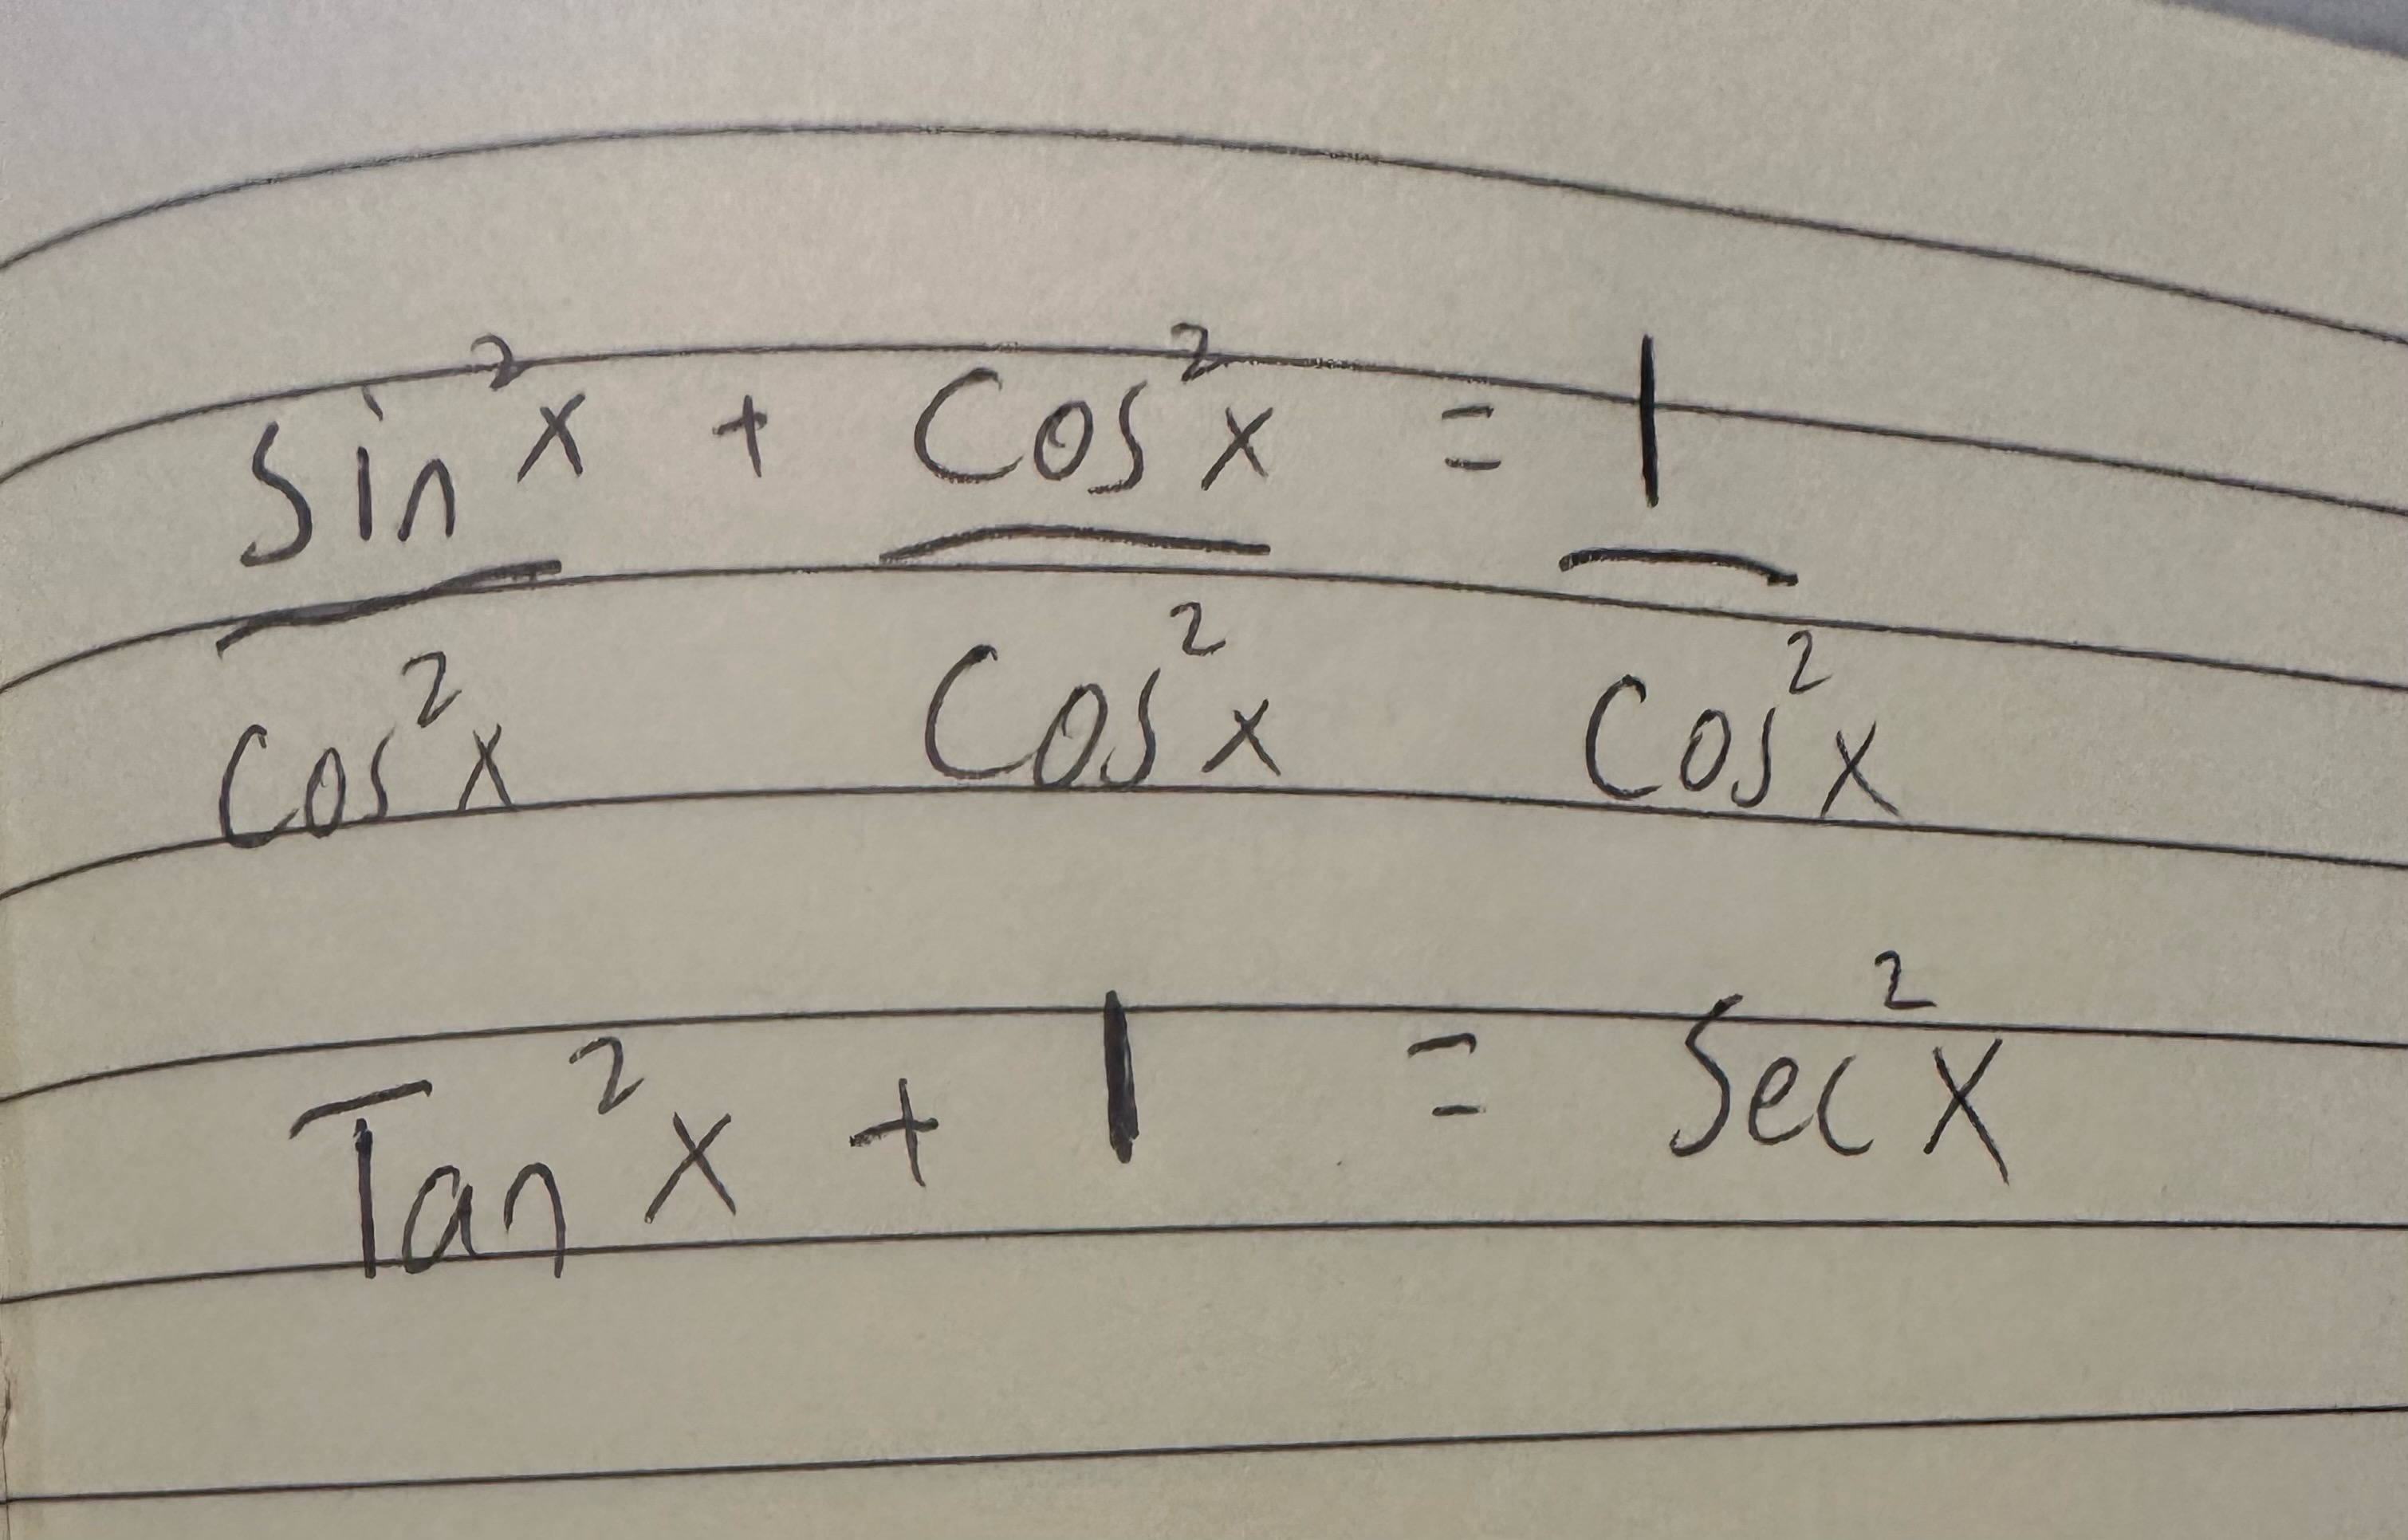 Sin²x + Cos²x = 1
Cos²x Cos²x Cos²x
Tan²x + 1 = Sec²x